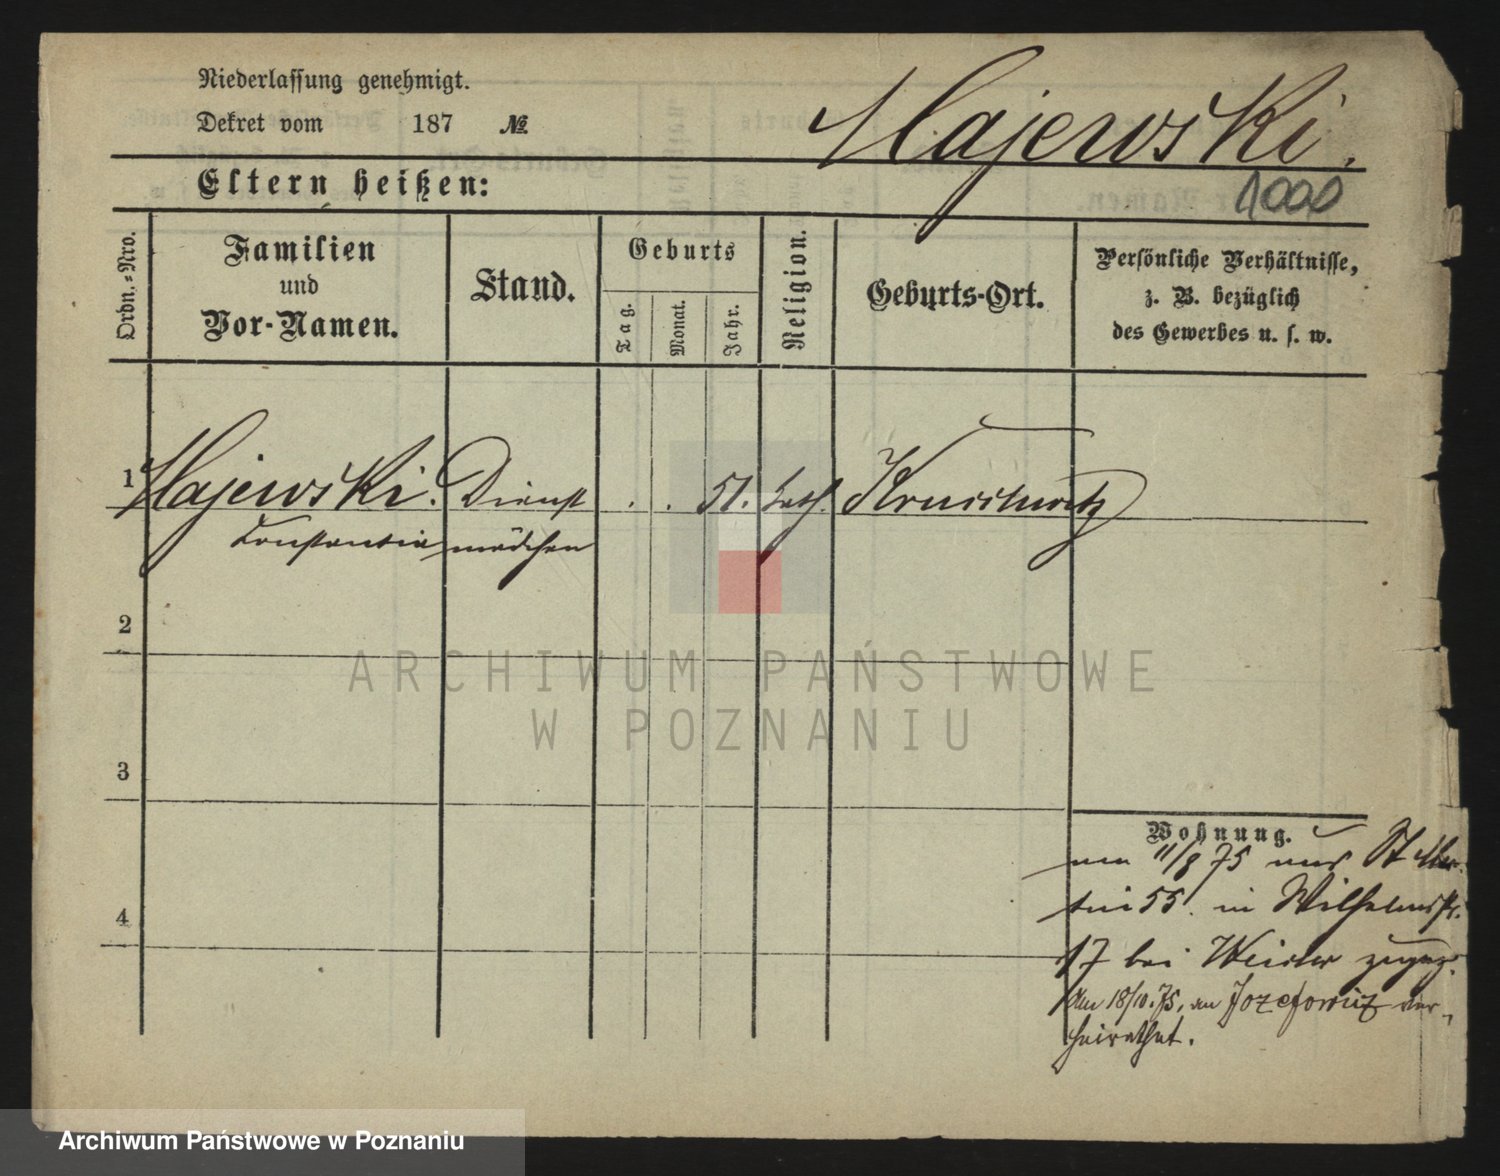 Niederlassung genehmigt.
Dekret vom 187 №
Majewski.
Eltern heißen:
1000
Ordn.-Nro.
Familien
und
Vor-Namen.
Stand.
Geburts
Tag.
Monat.
Jahr.
Religion.
Geburts-Ort.
Persönliche Verhältnisse,
z. B. bezüglich
des Gewerbes u. s. w.
1 Majewski. Dienst . . 51. kath. Kruschwitz
Constantia mädchen
2
ARCHIWUM PAŃSTWOWE
W POZNANIU
3
4
Wohnung.
am 11/8 75 aus St Mar-
tin 55. in Wilhelmsstr.
17 bei zugez.
Am 18/10. 75. an Jozefowicz ver-
heirathet.
Archiwum Państwowe w Poznaniu